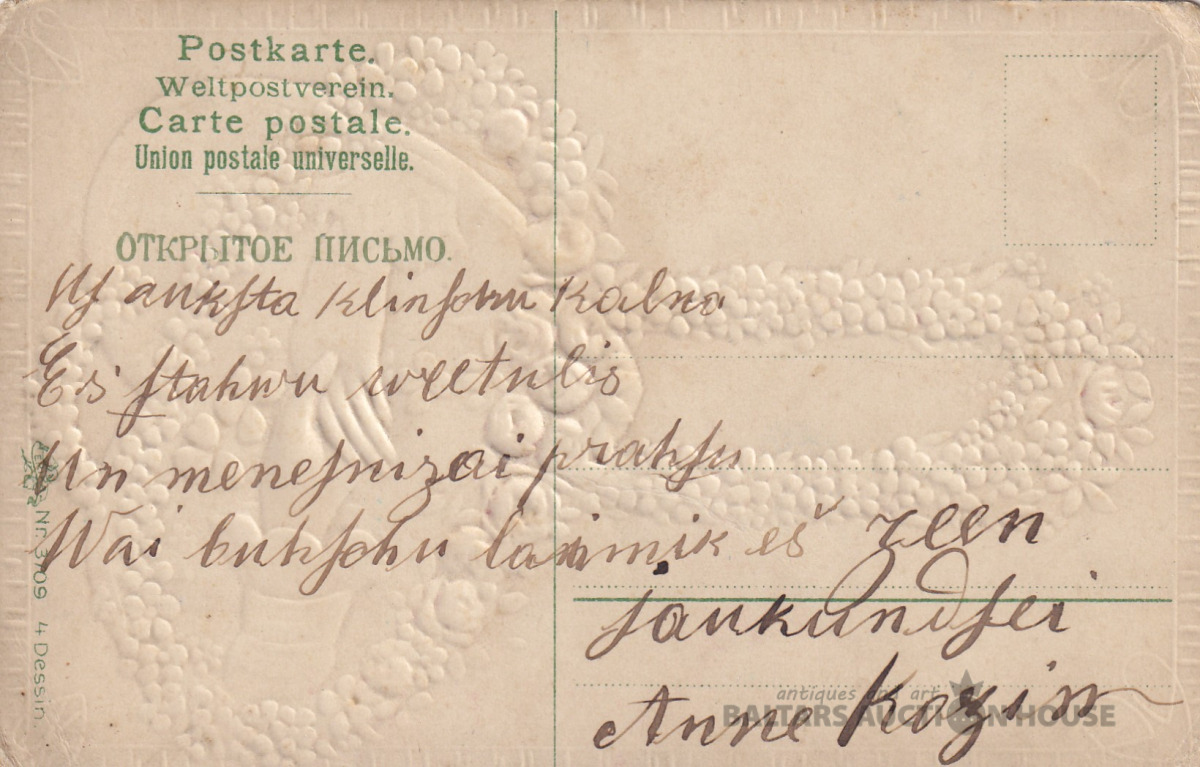 Postkarte.
Weltpostverein.
Carte postale.
Union postale universelle.
ОТКРЫТОЕ ПИСЬМО.
Us auksta klinschu kalna
Es stahwu weetulis
Un menesnizai prahsu
Wai buhschu laimik es
zeen
jaukundsei
Anne Kozin
Nr. 3709 4 Dessin.
antiques and art
BALTARS AUCTION HOUSE